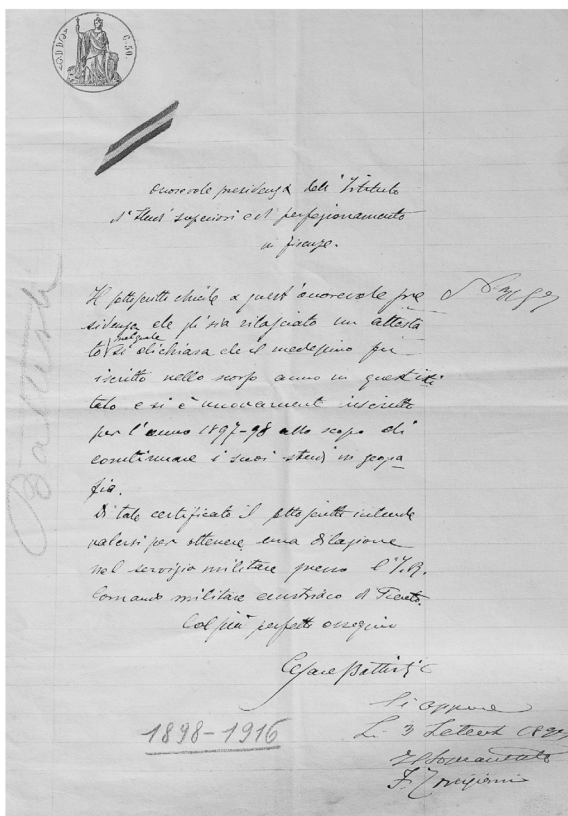 C. 50.
Onorevole presidenza dell'Istituto
di studi superiori e di perfezionamento
in firenze.
Il sottoscritto chiede a quest'onorevole pre
sidenza che gli sia rilasciato un attesta
to nel quale si dichiara che il medesimo fu
iscritto nello scorso anno in quest'isti
tuto e si è nuovamente inscritto
per l'anno 1897-98 allo scopo di
continuare i suoi studi in geogra
fia.
Di tale certificato il sottoscritto intende
valersi per ottenere una dilazione
nel servizio militare presso l'I.R.
Comando militare austriaco di Trento.
Col più perfetto ossequio
Cesare Battisti
Battisti
1898-1916
Si
Li 3
Il Soprintendente